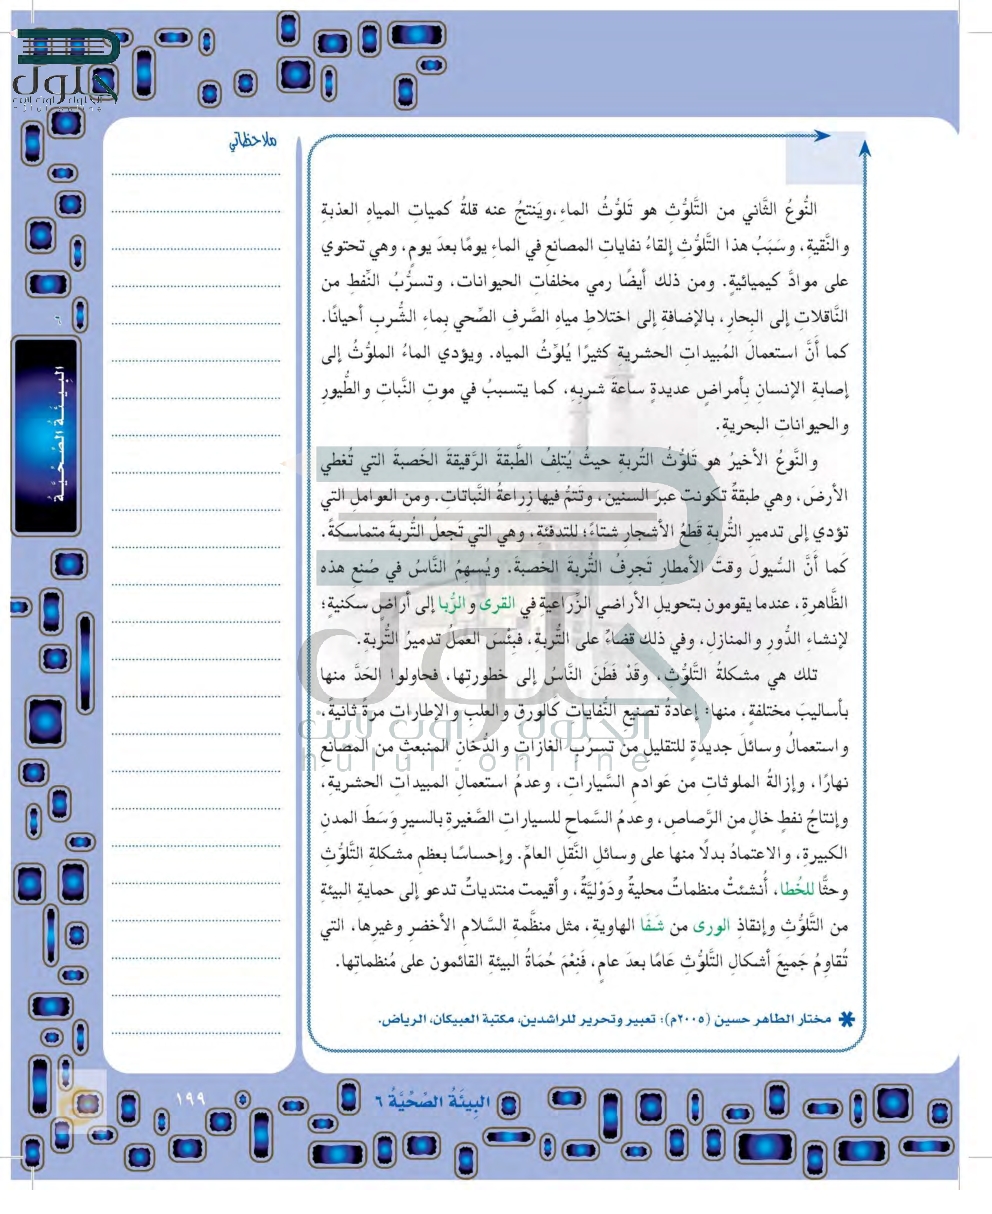 حلول
الحلول اون لاين
hulul.online
ملاحظاتي
النُّوعُ الثَّاني من التَّلوُّثِ هو تَلوُّثُ الماءِ،ويَنتجُ عنه قلةُ كمياتِ المياهِ العذبةِ
والنَّقيةِ، وسَبَبُ هذا التَّلوُّثِ إلقاءُ نفاياتِ المصانعِ في الماءِ يومًا بعدَ يومٍ، وهي تحتوي
على موادَّ كيميائيةٍ. ومن ذلك أيضًا رمي مخلفاتِ الحيوانات، وتسرُّبُ النِّفطِ من
النَّاقلاتِ إلى البحارِ، بالإضافةِ إلى اختلاطِ مياهِ الصَّرفِ الصِّحي بماءِ الشُّربِ أحيانًا.
كما أَنَّ استعمالَ المُبيداتِ الحشريةِ كثيرًا يُلوِّثُ المياه. ويؤدي الماءُ الملوَّثُ إلى
إصابةِ الإنسانِ بأمراضٍ عديدةٍ ساعةَ شربِهِ، كما يتسببُ في موتِ النَّباتِ والطُّيورِ
والحيواناتِ البحريةِ.
والنَّوعُ الأخيرُ هو تَلوُّثُ التُربةِ حيثُ يُتلِفُ الطَّبقةَ الرَّقيقةَ الخَصبةَ التي تُغطي
الأرضَ، وهي طبقةٌ تكونت عبرَ السنين، وتَتمُ فيها زراعةُ النَّباتات. ومن العواملِ التي
تؤدي إلى تدميرِ التُّربةِ قَطعُ الأشجارِ شتاءً؛ للتدفئة، وهي التي تَجعلُ التُّربةَ متماسكةً.
كَما أَنَّ السُّيولَ وقتَ الأمطارِ تَجرِفُ التُّربةَ الخَصبةَ. ويُسهمُ النَّاسُ في صُنعِ هذه
الظَّاهرةِ، عندما يقومون بتحويلِ الأراضي الزِّراعيةِ في القرى والرُّبا إلى أراضٍ سكنيةٍ؛
لإنشاءِ الدُّورِ والمنازلِ، وفي ذلك قضاءٌ على التُّربةِ، فبِئْسَ العملُ تدميرُ التُّربةِ.
تلك هي مشكلةُ التَّلوُّثِ، وقَدْ فَطَنَ النَّاسُ إلى خطورتِها، فحاولوا الحَدَّ منها
بأساليبَ مختلفةٍ، منها: إعادةُ تصنيعِ النُّفاياتِ كالورقِ والعلبِ والإطاراتِ مرةً ثانيةً،
واستعمالُ وسائلَ جديدةٍ للتقليلِ من تسرُّبِ الغازاتِ والدُّخَانِ المنبعثِ من المصانعِ
نهارًا، وإزالةُ الملوثاتِ من عَوادمِ السَّياراتِ، وعدمُ استعمالِ المبيداتِ الحشريةِ،
وإنتاجُ نفطٍ خالٍ من الرَّصاصِ، وعدمُ السَّماحِ للسياراتِ الصَّغيرةِ بالسيرِ وَسَطَ المدنِ
الكبيرةِ، والاعتمادُ بدلًا منها على وسائلِ النَّقلِ العامِّ. وإحساسًا بعظمِ مشكلةِ التَّلوُّثِ
وحثًّا للخُطا، أُنشئتْ منظماتٌ محليةٌ ودَوْليَّةٌ، وأقيمت منتدياتٌ تدعو إلى حمايةِ البيئةِ
من التَّلوُّثِ وإنقاذِ الورى من شَفَا الهاويةِ، مثل منظَّمةِ السَّلامِ الأخضرِ وغيرِها، التي
تُقاوِمُ جَميعَ أشكالِ التَّلوُّثِ عَامًا بعدَ عامٍ، فَنِعْمَ حُمَاةُ البيئةِ القائمون على مُنظماتِها.
* مختار الطاهر حسين (٢٠٠٥م): تعبير وتحرير للراشدين، مكتبة العبيكان، الرياض.
البيئَةُ الصِّحِّيَّةُ
حلول
الحلول اون لاين
hulul.online
البِيئَةُ الصِّحِّيَّةُ ٦
١٩٩